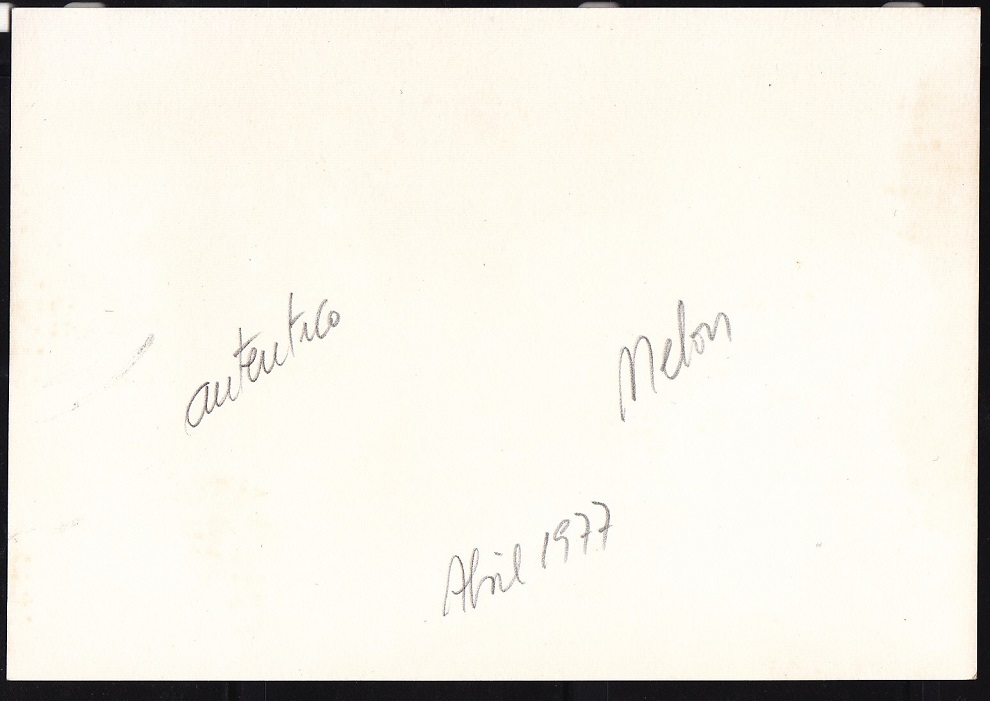 autentico
Melon
Abril 1977